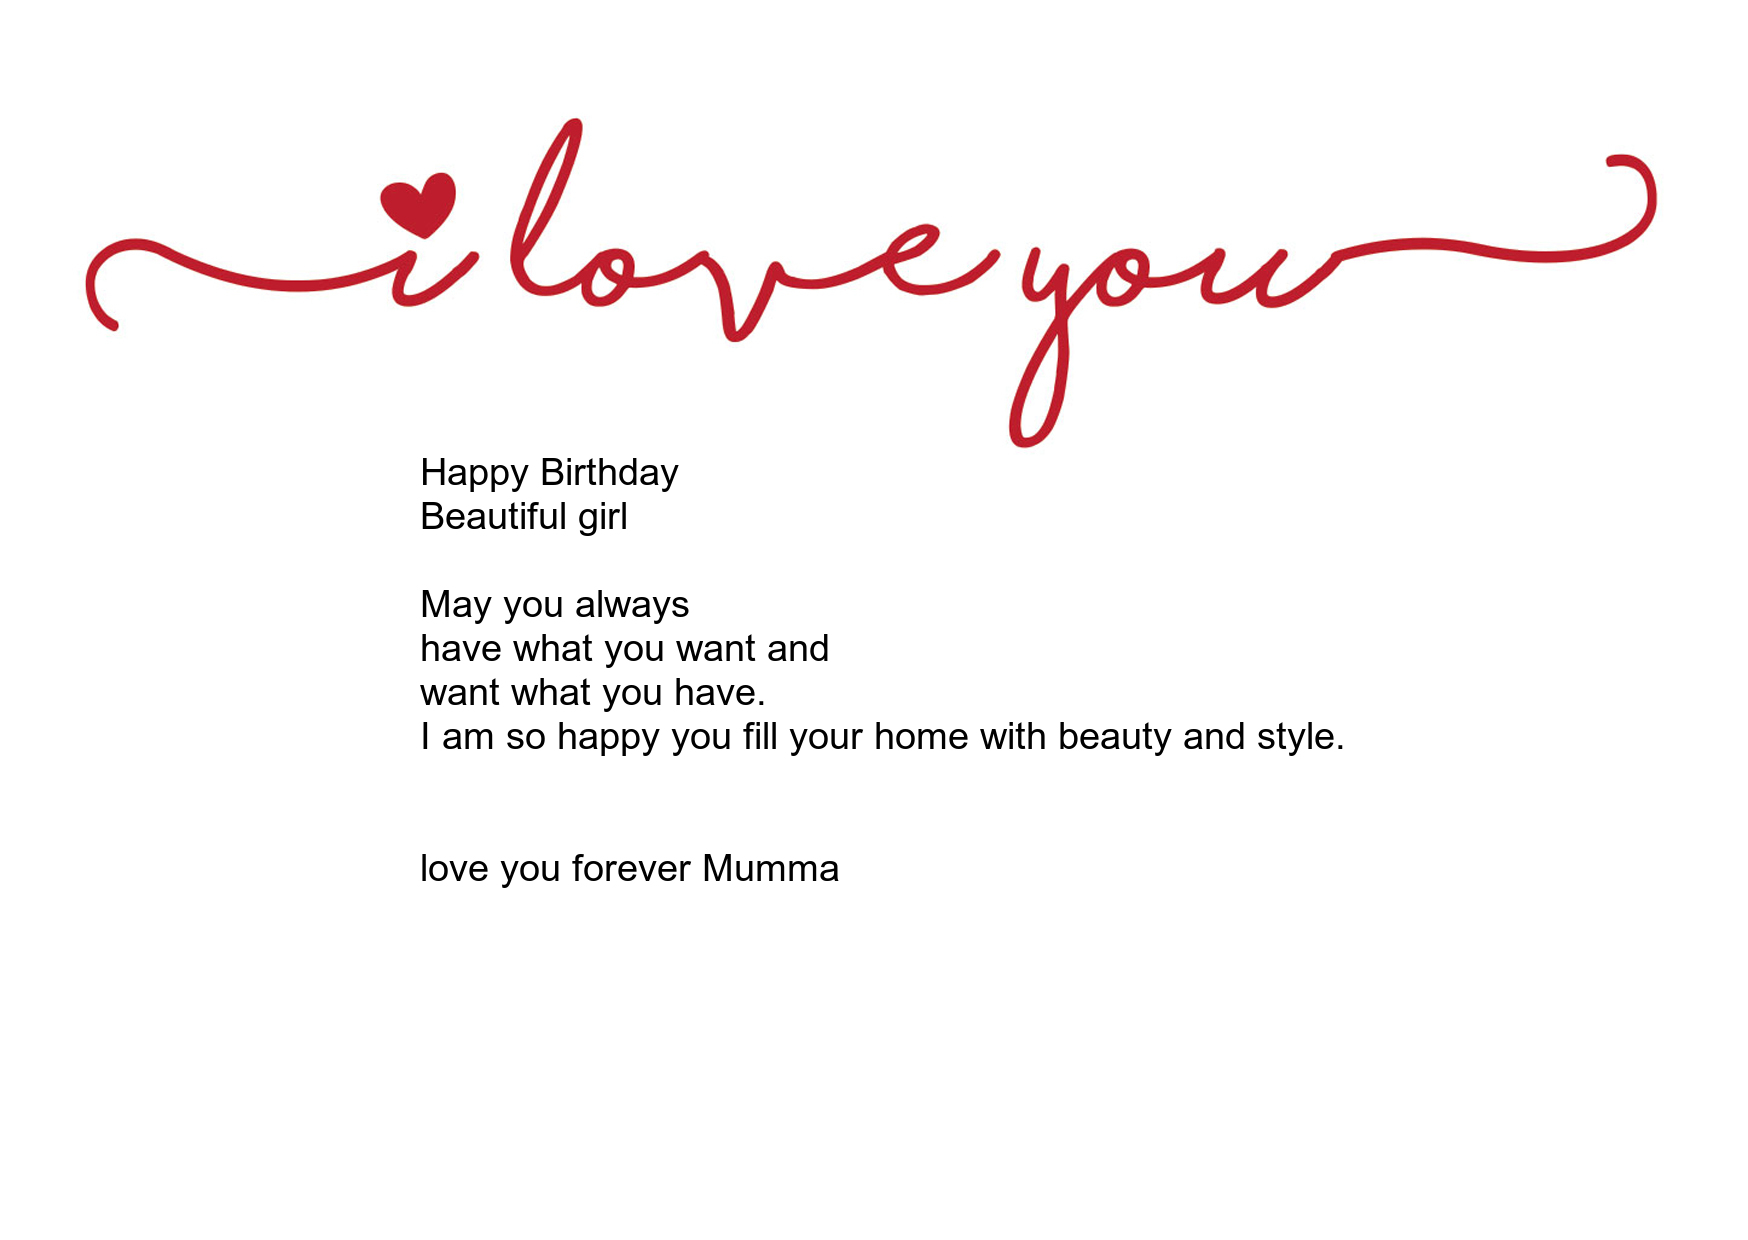 i love you
Happy Birthday
Beautiful girl
May you always
have what you want and
want what you have.
I am so happy you fill your home with beauty and style.
love you forever Mumma